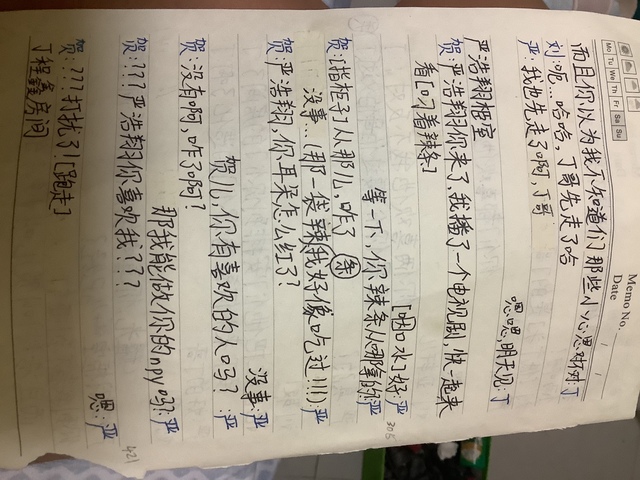 Memo No.
Date / /
Mo Tu We Th Fr Sa Su
而且你以为我不知道们那些小心思呀对:丁
刘:呃...哈哈,丁哥先走了哈
嗯嗯,明天见:丁
严:我也先走了啊,丁哥
严浩翔柜室
贺:严浩翔你来了,我播了一个电视剧,快一起来
看[叼着辣条]
[咽口水]好:严
等一下,你辣条从哪拿的:严
305
贺:[指柜子]从那儿,咋了
没事...(那一袋辣条我好像吃过!!!):严
贺:严浩翔,你耳朵怎么红了?
没事:严
贺儿,你有喜欢的人吗?:严
贺:没有啊,咋了啊?
那我能做你的npy吗?:严
贺:???严浩翔你喜欢我???
嗯:严
421
贺:???打扰了![跑走]
丁程鑫房间